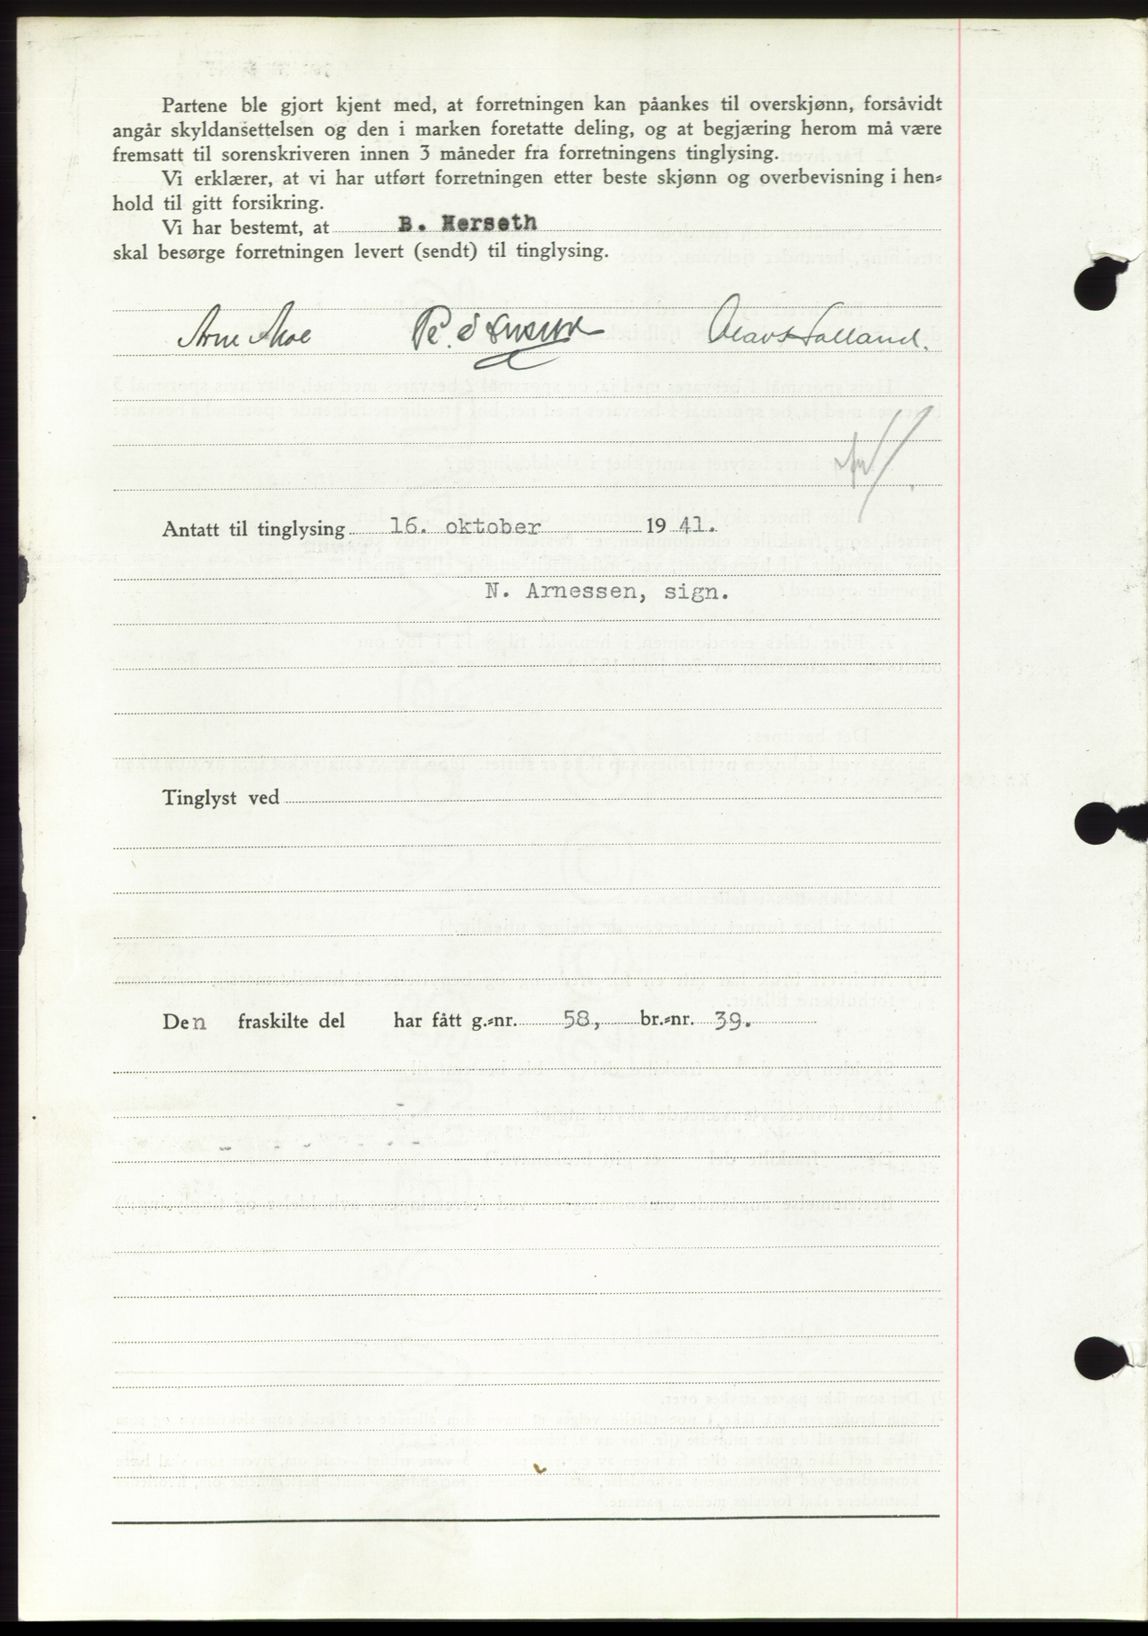 Partene ble gjort kjent med, at forretningen kan påankes til overskjønn, forsåvidt
angår skyldansettelsen og den i marken foretatte deling, og at begjæring herom må være
fremsatt til sorenskriveren innen 3 måneder fra forretningens tinglysing.
Vi erklærer, at vi har utført forretningen etter beste skjønn og overbevisning i hen-
hold til gitt forsikring.
Vi har bestemt, at B. Herseth
skal besørge forretningen levert (sendt) til tinglysing.
Arne Moe Olav Holland.
Antatt til tinglysing 16. oktober 19 41.
N. Arnessen, sign.
Tinglyst ved
Den fraskilte del har fått g.-nr. 58, br.-nr. 39.